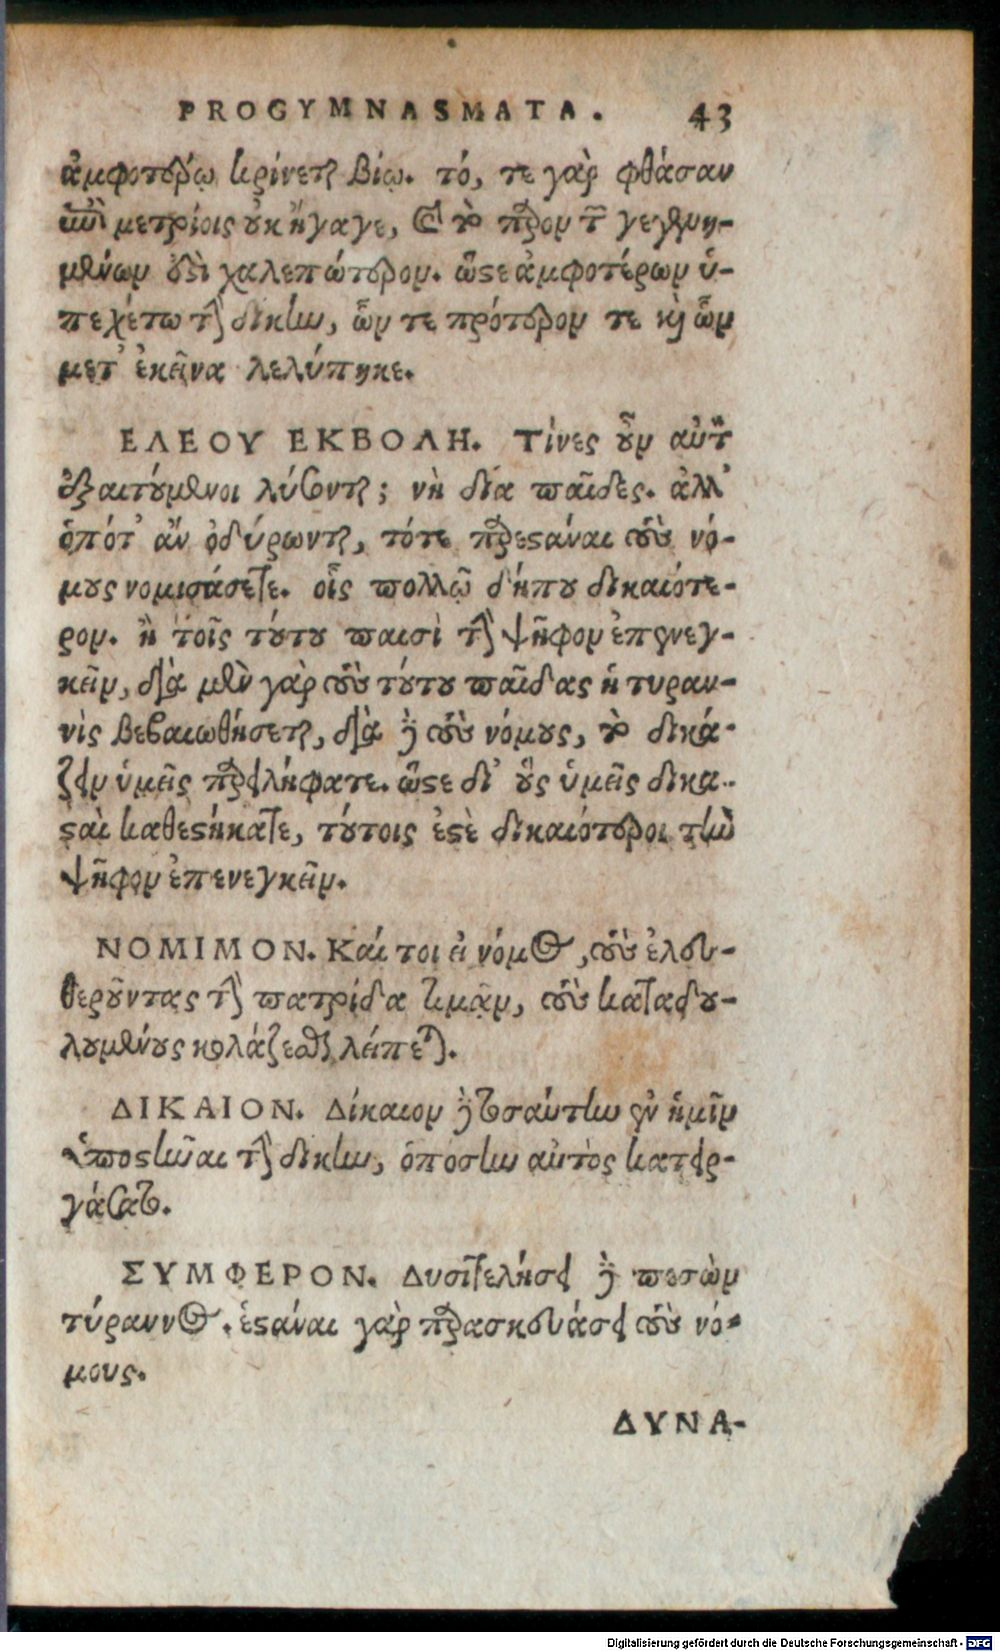 PROGYMNASMATA. 43
ἀμφοτέρῳ κρίνεται βίῳ. τό, τε γὰρ φθάσαν
ἐπὶ μετρίοις οὐκ ἤγαγε, καὶ τὸ παρὸν τῶν γεγενη-
μένων ἐστὶ χαλεπώτερον. ὥστε ἀμφοτέρων ὑ-
πεχέτω τὴν δίκην, ὧν τε πρότερον τε καὶ ὧν
μετ' ἐκεῖνα λελύπηκε.
ΕΛΕΟΥ ΕΚΒΟΛΗ. Τίνες οὖν αὐτὸν
ἐξαιτούμενοι λύσονται; νὴ δία παῖδες. ἀλλ'
ὁπότ' ἂν ὀδύρωνται, τότε παρεστάναι τοὺς νό-
μους νομισάσετε. οἷς πολλῷ δήπου δικαιότε-
ρον. ἢ τοῖς τούτου παισὶ τὴν ψῆφον ἐπενεγ-
κεῖν, διὰ μὲν γὰρ τοὺς τούτου παῖδας ἡ τυραν-
νὶς βεβαιωθήσεται, διὰ δὲ τοὺς νόμους, τὸ δικά-
ζειν ὑμεῖς παρειλήφατε. ὥστε δι' οὓς ὑμεῖς δικα-
σταὶ καθεστήκατε, τούτοις ἐστὲ δικαιότεροι τὴν
ψῆφον ἐπενεγκεῖν.
ΝΟΜΙΜΟΝ. Καί τοι εἰ νόμος, τοὺς ἐλευ-
θεροῦντας τὴν πατρίδα τιμᾶν, τοὺς καταδου-
λουμένους κολάζεσθαι λείπεται.
ΔΙΚΑΙΟΝ. Δίκαιον δὲ τοσαύτην ἐν ἡμῖν
ὑποστῆναι τὴν δίκην, ὁπόσην αὐτὸς κατειρ-
γάσατο.
ΣΥΜΦΕΡΟΝ. Λυσιτελήσει δὲ πεσὼν
τύραννος. ἑστάναι γὰρ παρασκευάσει τοὺς νό-
μους.
ΔΥΝΑ-
Digitalisierung gefördert durch die Deutsche Forschungsgemeinschaft - DFG